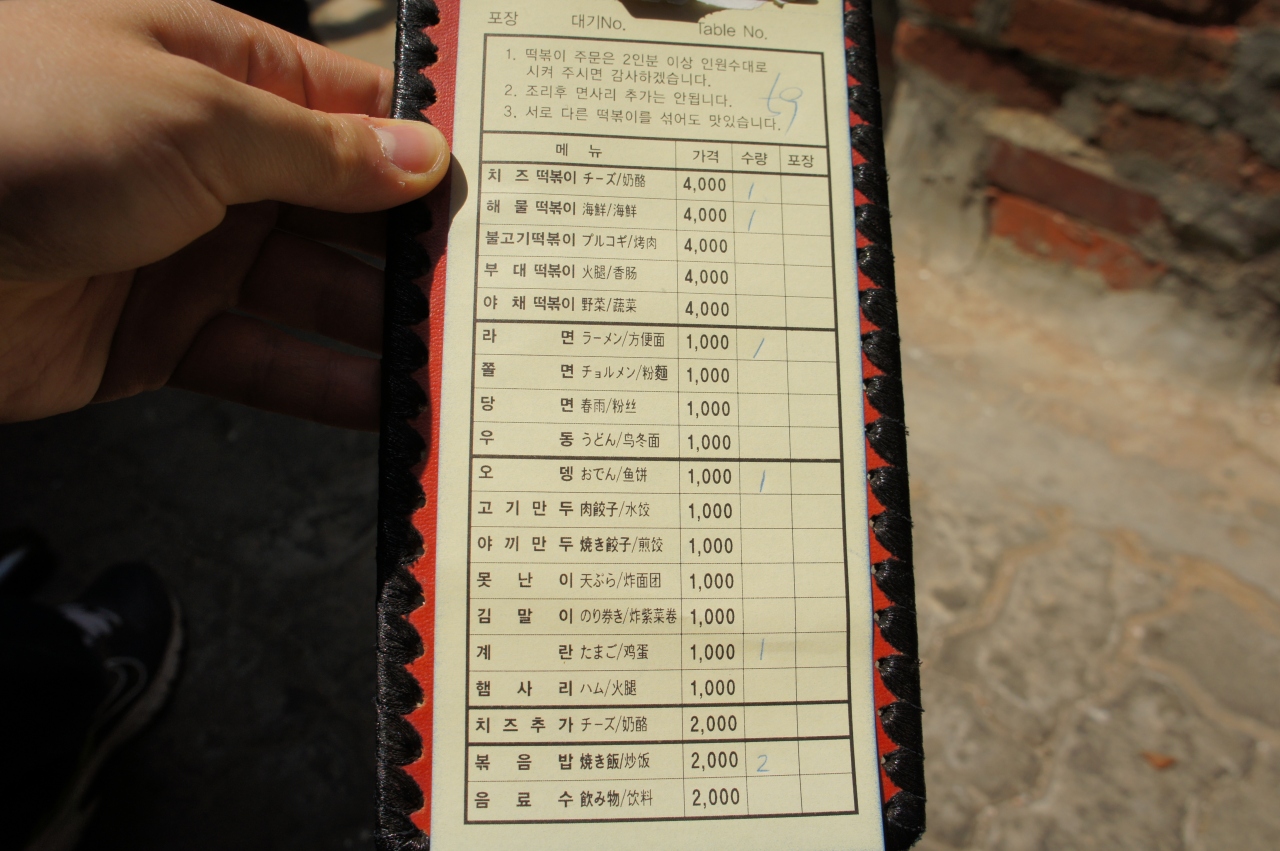 포장 대기No. Table No.
1. 떡볶이 주문은 2인분 이상 인원수대로
시켜 주시면 감사하겠습니다.
2. 조리후 면사리 추가는 안됩니다.
3. 서로 다른 떡볶이를 섞어도 맛있습니다.
메 뉴 가격 수량 포장
치 즈 떡볶이 チーズ/奶酪 4,000 1
해 물 떡볶이 海鮮/海鲜 4,000 1
불고기떡볶이 プルコギ/烤肉 4,000
부 대 떡볶이 火腿/香肠 4,000
야 채 떡볶이 野菜/蔬菜 4,000
라 면 ラーメン/方便面 1,000 1
쫄 면 チョルメン/粉麵 1,000
당 면 春雨/粉丝 1,000
우 동 うどん/乌冬面 1,000
오 뎅 おでん/鱼饼 1,000 1
고 기 만 두 肉餃子/水饺 1,000
야 끼 만 두 焼き餃子/煎饺 1,000
못 난 이 天ぷら/炸面团 1,000
김 말 이 のり券き/炸紫菜卷 1,000
계 란 たまご/鸡蛋 1,000 1
햄 사 리 ハム/火腿 1,000
치 즈 추 가 チーズ/奶酪 2,000
볶 음 밥 焼き飯/炒饭 2,000 2
음 료 수 飲み物/饮料 2,000